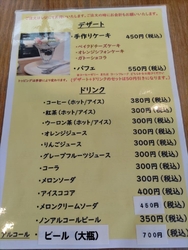 デザート
・手作りケーキ 450円(税込)
・ベイクドチーズケーキ
・オレンジシフォンケーキ
・ガトーショコラ
・パフェ 550円(税込)
ドリンク
・コーヒー(ホット/アイス) 380円(税込)
・紅茶(ホット/アイス) 300円(税込)
・ウーロン茶(ホット/アイス) 300円(税込)
・オレンジジュース 300円(税込)
・りんごジュース 300円(税込)
・グレープフルーツジュース 300円(税込)
・コーラ 300円(税込)
・メロンソーダ 300円(税込)
・アイスココア 400円(税込)
・メロンクリームソーダ 450円(税込)
・ノンアルコールビール 350円(税込)
アルコール・ビール(大瓶) 700円(税込)